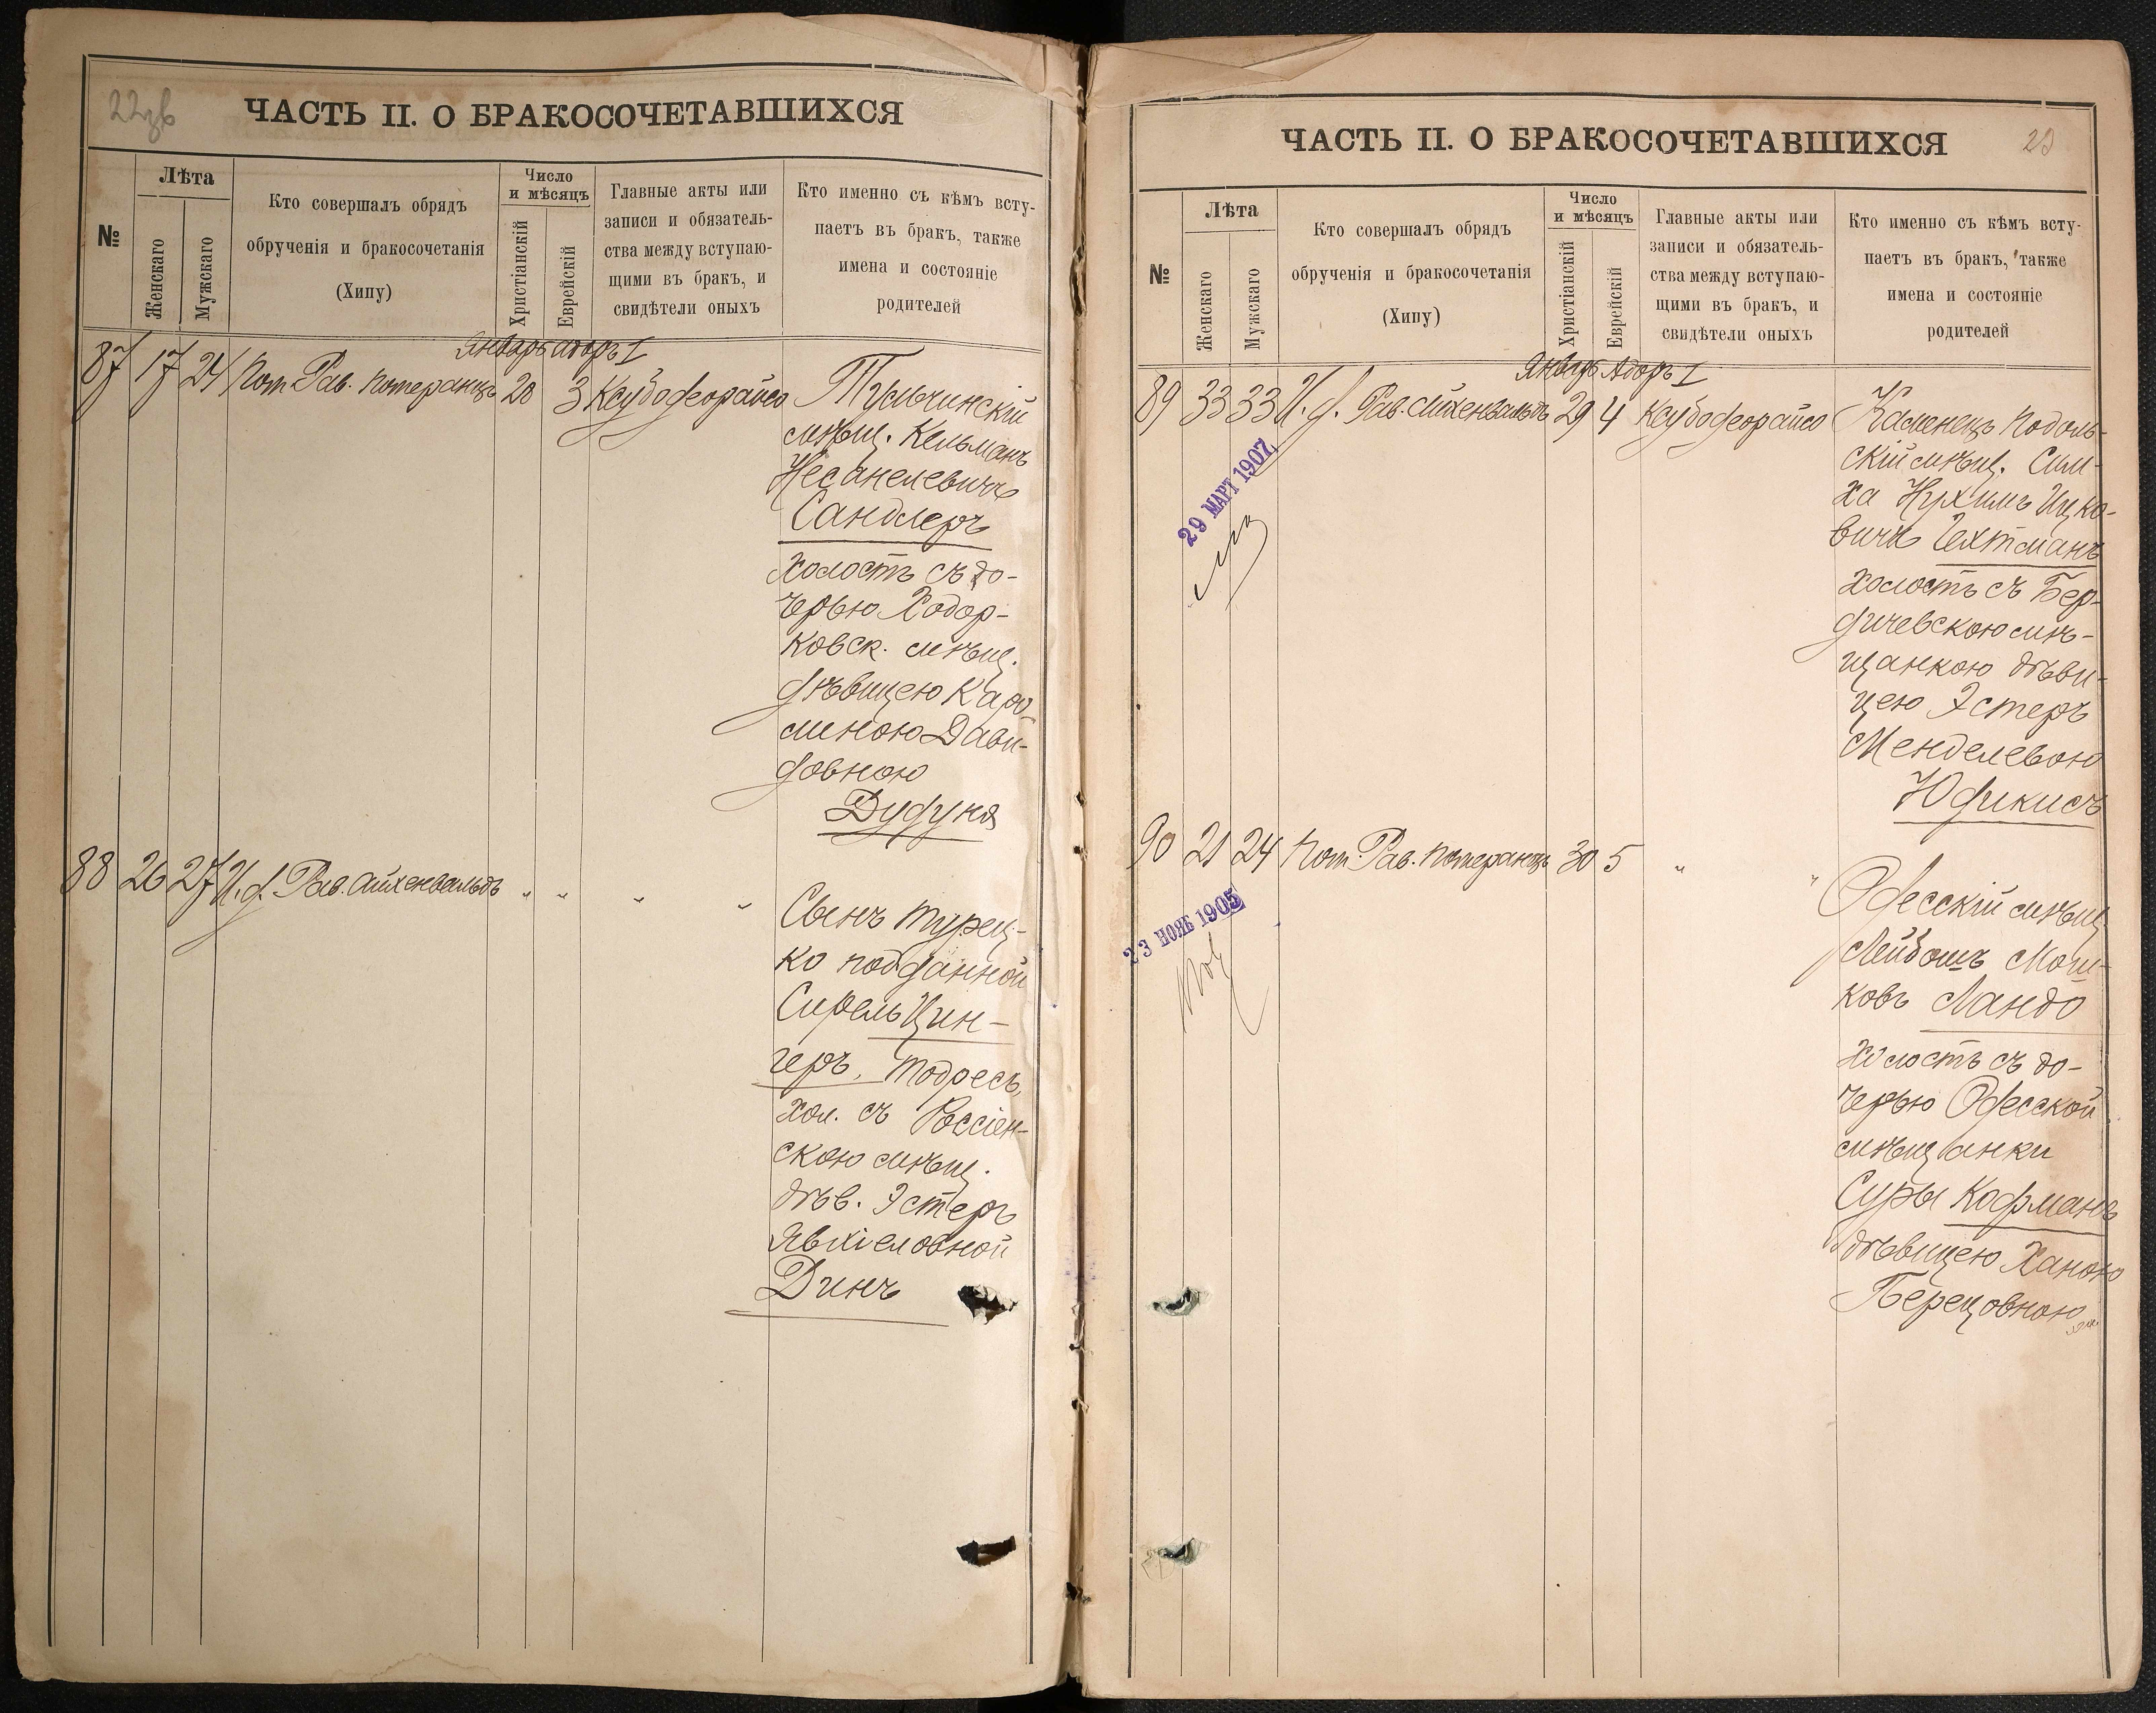 22зв
ЧАСТЬ II. О БРАКОСОЧЕТАВШИХСЯ
№
Лѣта
Женскаго
Мужскаго
Кто совершалъ обрядъ
обрученія и бракосочетанія
(Хипу)
Число
и мѣсяцъ
Христіанскій
Еврейскій
Главные акты или
записи и обязатель-
ства между вступаю-
щими въ бракъ, и
свидѣтели оныхъ
Кто именно съ кѣмъ всту-
паетъ въ бракъ, также
имена и состояніе
родителей
Январь Адоръ I
87 17 24 Пом. Рав. Померанцъ 28 3 Ксубодеорайсо
Тульчинскій
мѣщ. Кельманъ
Несанелевичъ
Сандлеръ
холостъ съ до-
черью Ходор-
ковск. мѣщ.
дѣвицею Каро-
линою Дави-
довною
Дудуня
88 26 27 И. д. Рав. Айхенвальдъ " " " "
Сынъ турец-
ко подданной
Сирель Цин-
геръ, Тодресъ,
хол. съ Россіен-
скою мѣщ.
дѣв. Эстеръ
Явхіеловной
Динъ
ЧАСТЬ II. О БРАКОСОЧЕТАВШИХСЯ
23
№
Лѣта
Женскаго
Мужскаго
Кто совершалъ обрядъ
обрученія и бракосочетанія
(Хипу)
Число
и мѣсяцъ
Христіанскій
Еврейскій
Главные акты или
записи и обязатель-
ства между вступаю-
щими въ бракъ, и
свидѣтели оныхъ
Кто именно съ кѣмъ всту-
паетъ въ бракъ, также
имена и состояніе
родителей
Январь Адоръ I
89 33 33 И. д. Рав. Айхенвальдъ 29 4 Ксубодеорайсо
29 МАРТ 1907
Каменецъ Подоль-
скій мѣщ. Сим-
ха Нухимъ Ицко-
вичъ Гехтманъ
холостъ съ Бер-
дичевскою мѣ-
щанкою дѣви-
цею Эстеръ
Менделевою
Юфикисъ
90 21 24 Пом. Рав. Померанцъ 30 5 " "
23 НОЯБ 1905
Одесскій мѣщ.
Лейбошъ Мош-
ковъ Ландо
холостъ съ до-
черью Одесской
мѣщанки
Суры Кофманъ
дѣвицею Ханою
Берецовною